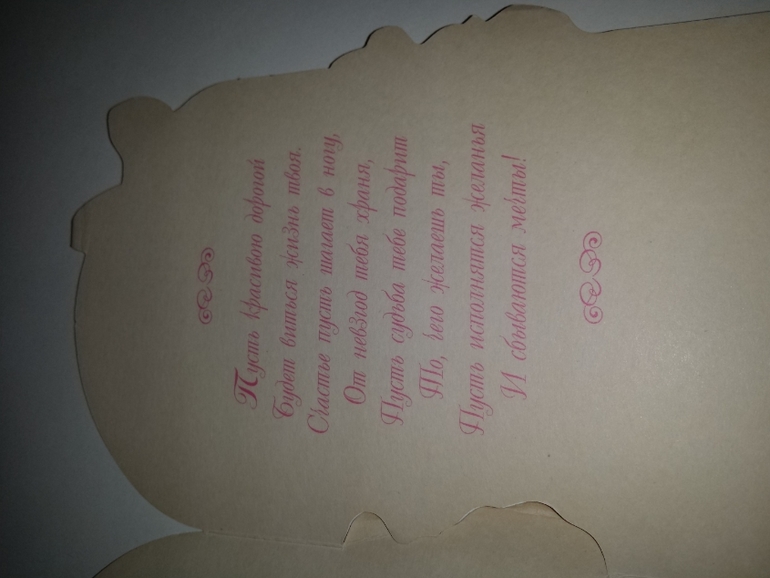 Пусть красивою дорогой
Будет виться жизнь твоя.
Счастье пусть шагает в ногу,
От невзгод тебя храня,
Пусть судьба тебе подарит
То, чего желаешь ты,
Пусть исполнятся желанья
И сбываются мечты!